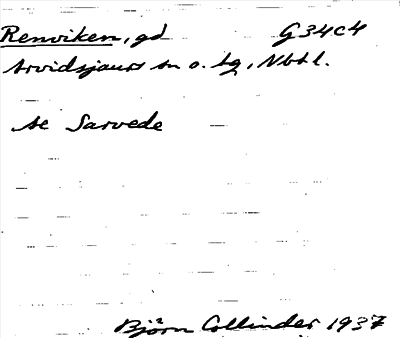 Renviken, gd G34c4
Arvidsjaurs sn o. tg, Nbtl.
se Sarvede
Björn Collinder 1937